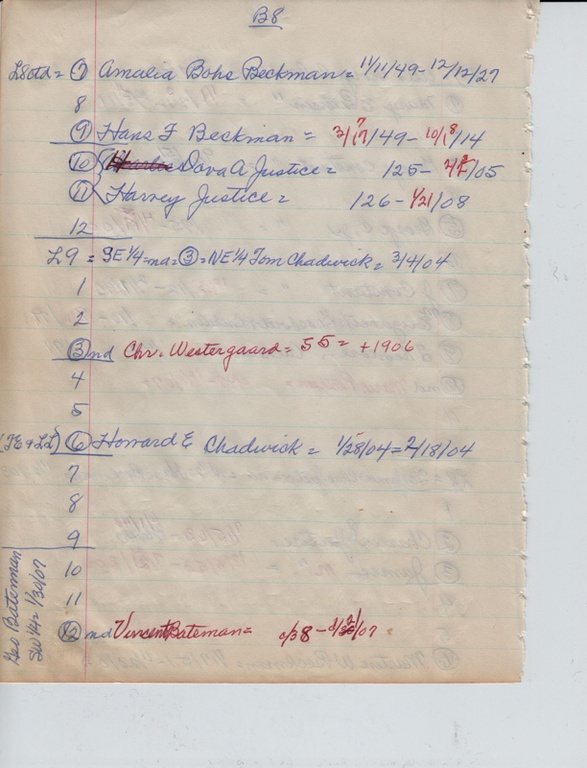 B8
L8ctd = ⑦ Amalia Bohs Beckman = 11/11/49 - 12/12/27
8
⑨ Hans F Beckman = 3/17/49 - 10/18/14
⑩ Dora A Justice = 125 - /05
⑪ Harvey Justice = 126 - 1/21/08
12
L9 = SE 1/4 = na = ③ = NE 1/4 Tom Chadwick = 3/4/04
1
2
③ nd Chr. Westergaard = 55 = +1906
4
5
⑥ Howard E Chadwick = 1/28/04 = 2/18/04
7
8
9
10
11
⑫ nd Vincent Bateman = 0/38 - /07
Geo Bateman
SW 1/4 = 1/30/07